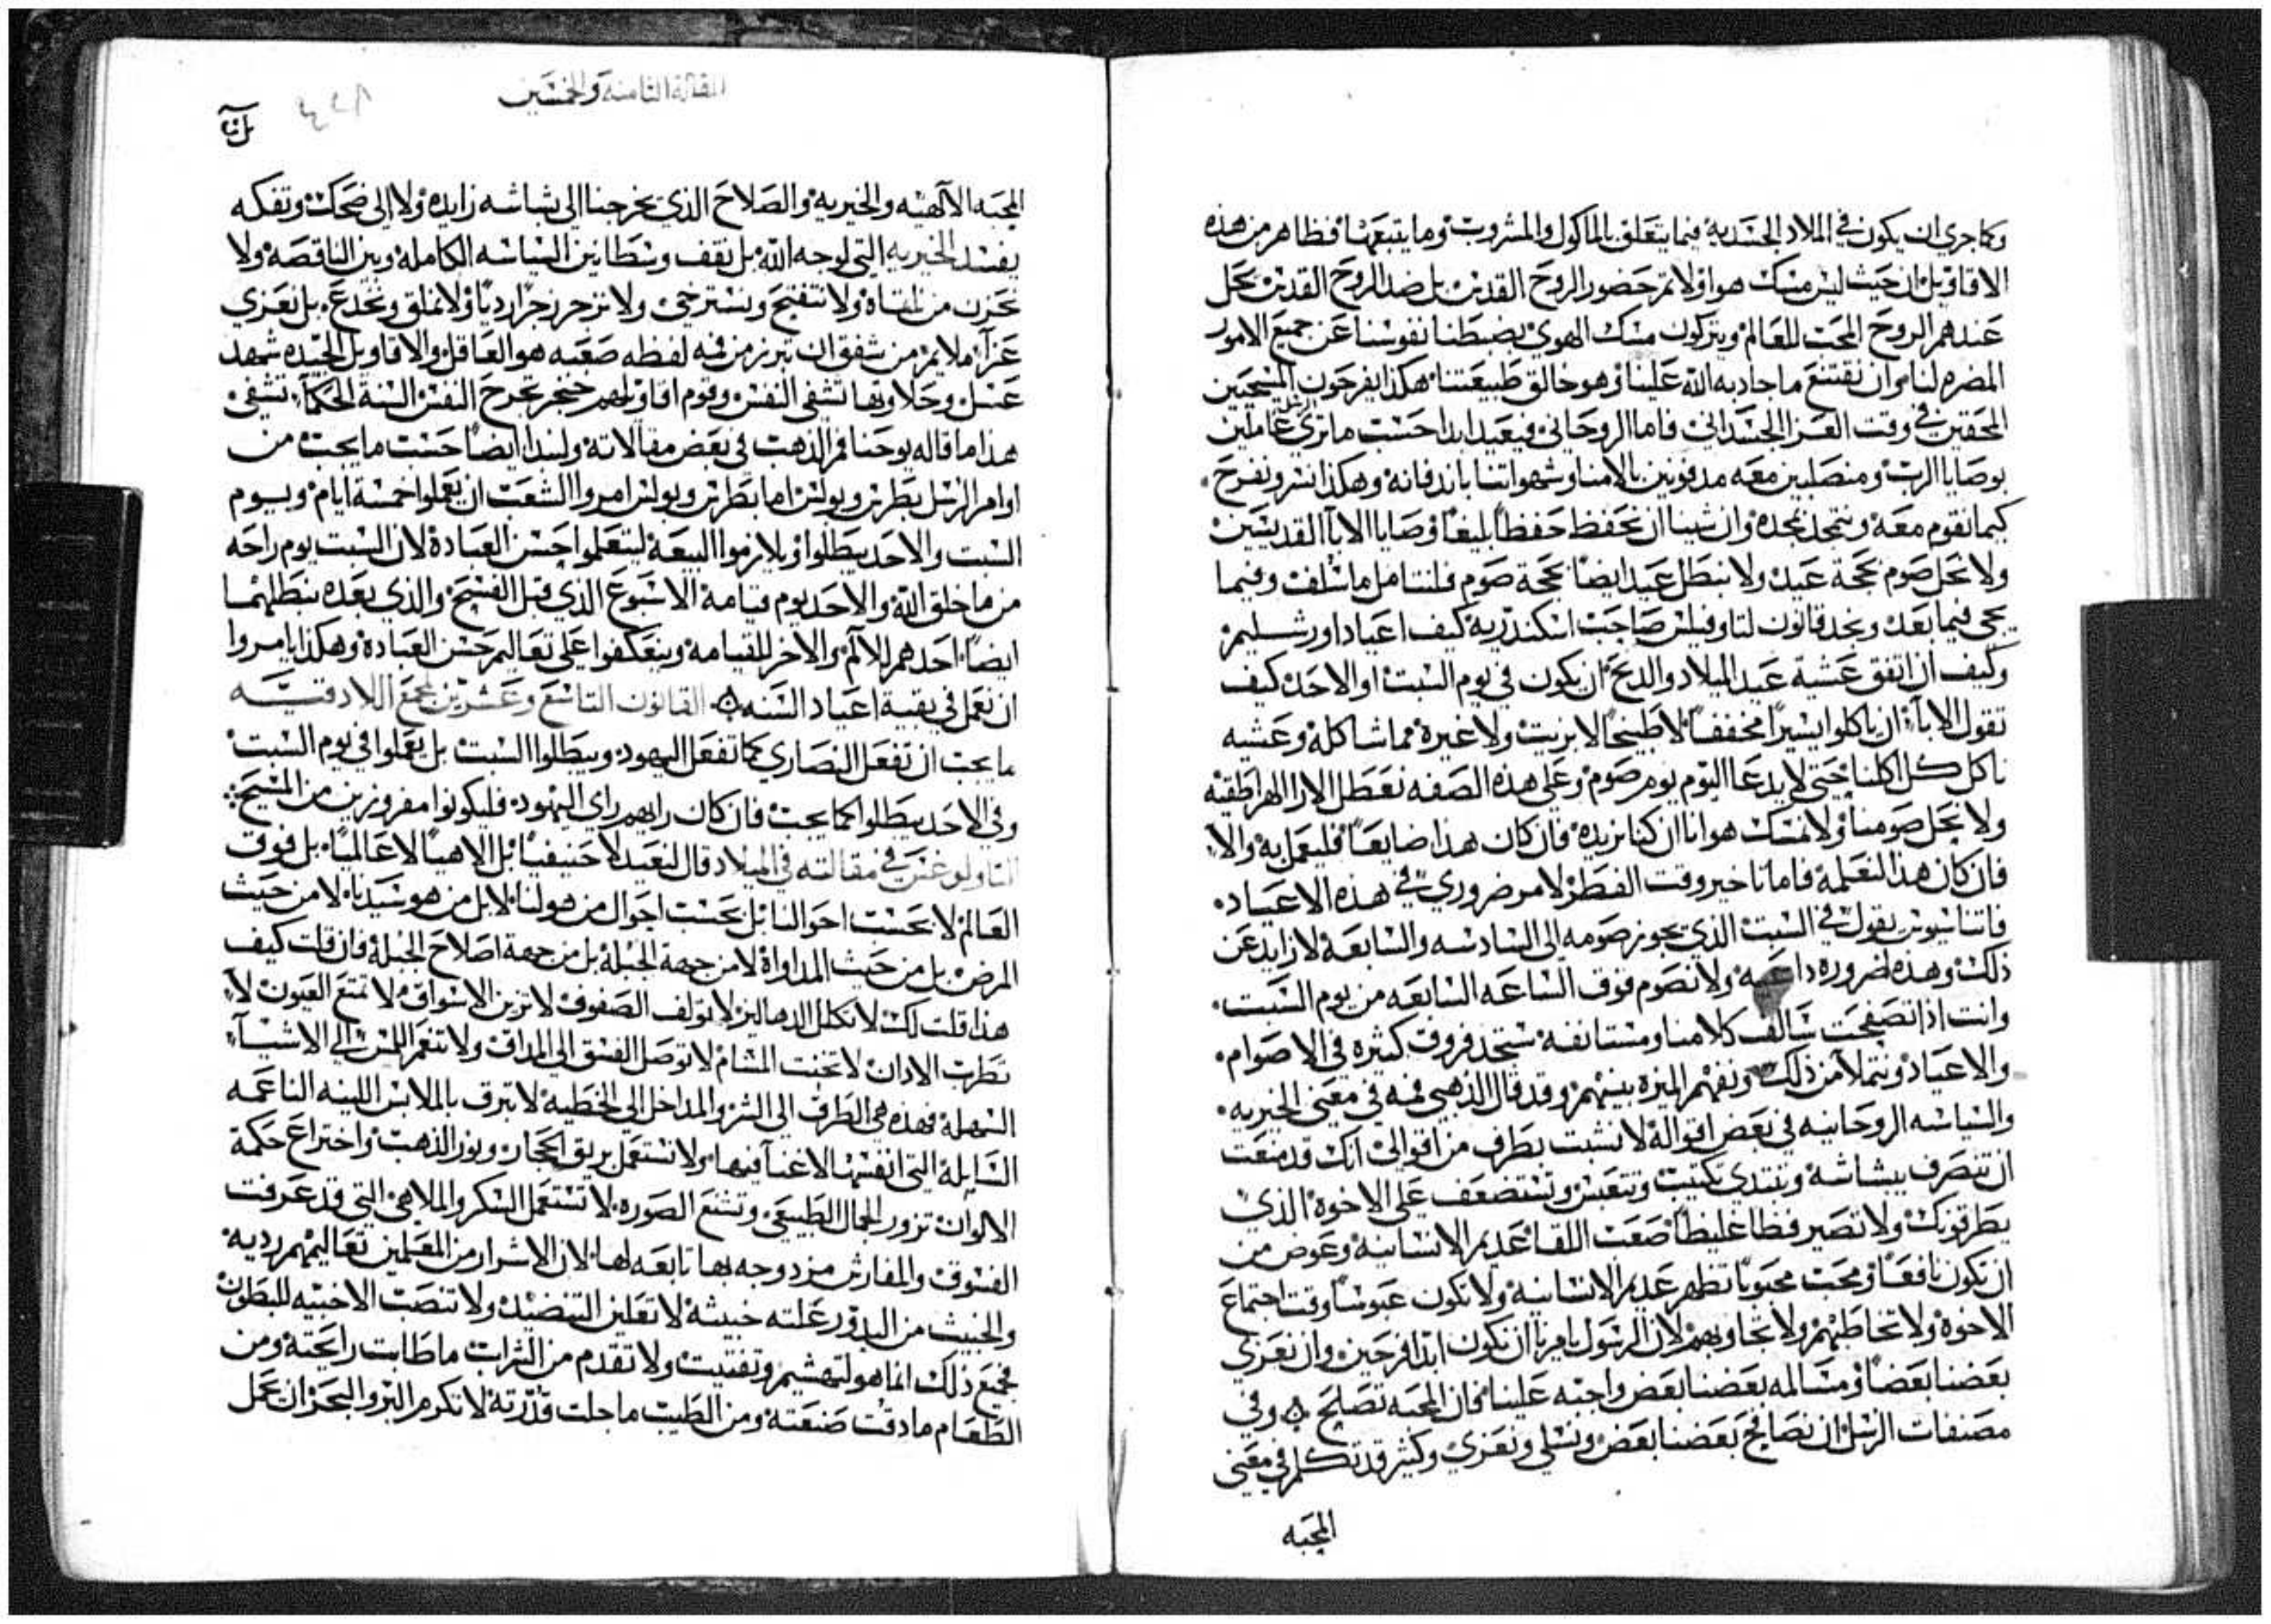 وكما جري ان يكون في الملاد الجسديه فيما يتعلق بالماكول والمشروب وما يتبعهما فظاهر من هذه
الاقاويل ان حيث ليس مسك هوا ولا تم حضور الروح القدس بل ضد الروح القدس يحل
عندهم الروح المحب للعالم ويتركون مسك الهوي بضبطنا نفوسنا عن جميع الامور
المضره لنا وان نقتنع ما جاد به الله علينا وهو خالق طبيعتنا هكذا يفرحون المسيحيين
المحقين في وقت العزا الجسداني فاما الروحاني فيعيد ابدا حسب ما تري عاملين
بوصايا الرب ومنصلبين معه مدفونين بالامنا وشهواتنا باندفانه وهكذا نسر ونفرح
كيما نقوم معه ونتمجد بمجده وان شينا ان نحفظ حفظا بليغا وصايا الابا القديسين
ولا نحل صوم بحجة عيد ولا نبطل عيد ايضا بحجة صوم فلنتامل ما سلف وفيما
يجي فيما بعد ونجد قانون لتاوفيلس صاحب اسكندرية كيف اعياد اورشليم
وكيف ان اتفق عشية عيد الميلاد والدنح ان يكون في يوم السبت او الاحد كيف
تقول الابا ان ياكلوا يسيرا مخففا لا طبيخا لا بزيت ولا غيره مما شاكله وعشيه
ناكل كل اكلنا حتي لا يدعا اليوم يوم صوم وعلي هذه الصفه نعطل الارا الهراطقيه
ولا نحل صومنا ولا نمسك هوانا ان كنا نريده فان كان هذا ضايعا فليعمل به والا
فان كان هذا لنعلمه فاما تاخير وقت الفطر لامر ضروري في هذه الاعياد
فاتناسيوس يقول في السبت الذي يجوز صومه الي السادسه والسابعه لا زايد عن
ذلك وهذه لضروره داعيه ولا نصوم فوق الساعه السابعه من يوم السبت
وانت اذا تصفحت سالف كلامنا ومستانفه ستجد فروق كثيره في الاصوام
والاعياد ونتملا من ذلك ونفهم الميزه بينهم وقد قال الذهبي فمه في معني الخيريه
والسياسه الروحانيه في بعض اقواله لا تشبت بطرف من اقوالي انك قد منعت
ان تنصرف ببشاشه وتبتدي تكتيب وتتعبس وتستضعف علي الاخوه الذي
يطرقونك ولا تصير فظا غليظا صعب اللقا عديم الانسانيه وعوض من
ان تكون نافعا ومحب محبوبا تظهر عديم الانسانيه ولا تكون عبوسا وقت اجتماع
الاخوه ولا تخاطبهم ولا تجاوبهم لان الرسول يامرنا ان نكون ابدا فرحين وان نعزي
بعضنا بعضا ومسالمه بعضنا بعض واجبه علينا فان المحبه تصلح وفي
مصنفات الرسل ان نصافح بعضنا بعض ونسلي ونعزي وكثير قد تكلم في معني
المحبه
المقالة الثامنة والخمسين
المحبه الالاهيه والخيريه والصلاح الذي يخرجنا الي بشاشه زايده ولا الي ضحك وتفكه
يفسد الخيريه التي لوجه الله بل نقف وسطا بين السياسه الكامله وبين الناقصه ولا
نحزن من نلقاه ولا نتفتح ونسترخي ولا نزجر زجرا رديا ولا نملق ونخدع بل نعزي
عزا ملايم من شفق ان تبرز من فمه لفظه صعبه هو العاقل والاقاويل الجيده شهد
عسل وحلاوتها تشفي النفس وقوم اقاويلهم خنجر تجرح النفس السنة الحكما تشفي
هذا ما قاله يوحنا فم الذهب في بعض مقالاته ولنبدا ايضا حسب ما يجب من
اوامر الرسل بطرس وبولس اما بطرس وبولس امروا الشعب ان يعملوا خمسة ايام وبيوم
السبت والاحد يبطلوا ويلازموا البيعة ليتعلموا حسن العبادة لان السبت يوم راحه
من ما خلق الله والاحد يوم قيامة الاسبوع الذي قبل الفسح والذي بعده نبطلهما
ايضا احدهم للالم والاخر للقيامه ويتعكفوا علي تعاليم حسن العبادة وهكذا يامروا
ان نعمل في بقية اعياد السنه القانون التاسع وعشرين لمجمع اللادقيه
ما يجب ان تفعل النصاري كما تفعل اليهود ويبطلوا السبت بل يعملوا في يوم السبت
وفي الاحد يبطلوا كما يجب فان كان رايهم راي اليهود فليكونوا مفروزين من المسيح
التاولوغس في مقالته في الميلاد قال لنعيد لا حنيفيا بل الاهيا لا عالميا بل فوق
العالم لا بحسب احوالنا بل بحسب احوال من هو لنا لا بل من هو سيدنا لا من حيث
المرض بل من حيث المداواة لا من جهة الجبلة بل من جهة اصلاح الجبلة فان قلت كيف
هذا قلت لك لا نكلل الدهاليز لا نولف الصفوف لا نزين الاسواق لا نمتع العيون لا
نطرب الادان لا نخنت المشام لا نوصل الفسق الي المداق ولا ننعم اللمس الي الاشيا
السهله فهذه هي الطرق الي الشر والمداخل الي الخطية لا نترف بالملابس اللينه الناعمه
السايلة التي انفسها لا غنا فيها ولا نستعمل بريق الحجار ونور الذهب واختراع حكمة
الالوان تزور الجمال الطبيعي وتشنع الصوره لا نستعمل السكر والملاهي التي قد عرفت
الفسوق والمفارش مزدوجه بها تابعه لها لان الاشرار من المعلمين تعاليمهم رديه
والخبيث من البدور غلته خبيثة لا نعلين التنضيد ولا ننصب الاخبيه للبطون
فجمع ذلك انما هو لتهشيم وتفتيت ولا نقدم من الثرات ما طابت رايحته ومن
الطعام ما دقت صنعته ومن الطيب ما جلت قدرته لا نكرم البر والبحر ان عمل